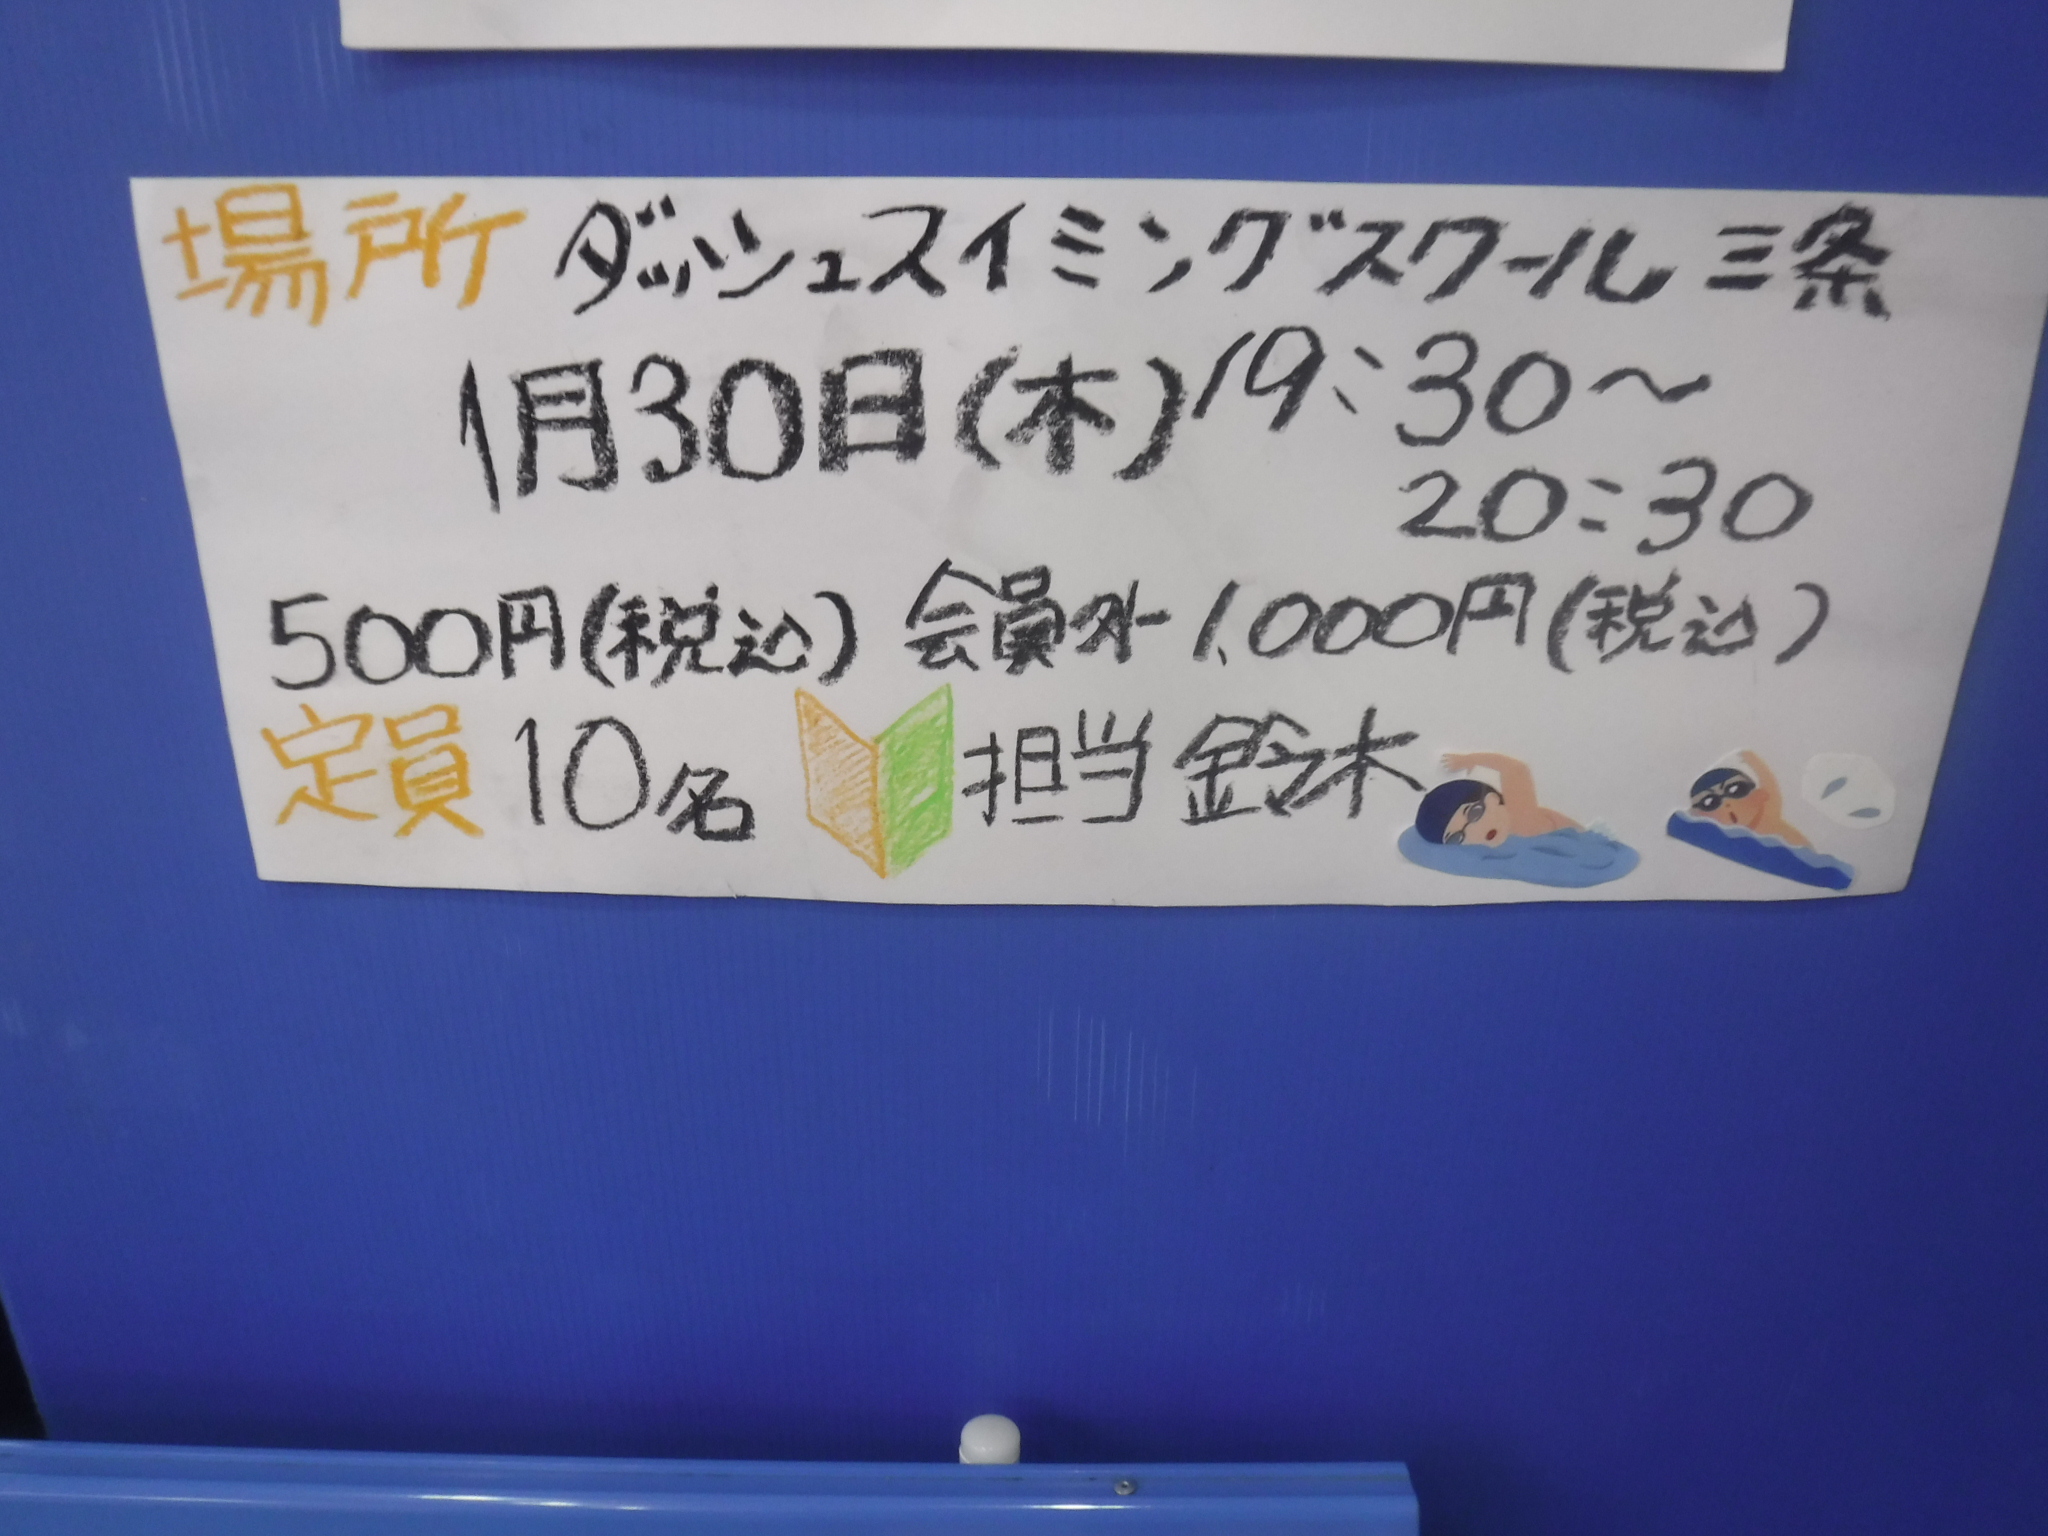 場所 ダッシュスイミングスクール三条
1月30日(木)19:30～
20:30
500円(税込) 会員外 1,000円(税込)
定員 10名 担当 鈴木